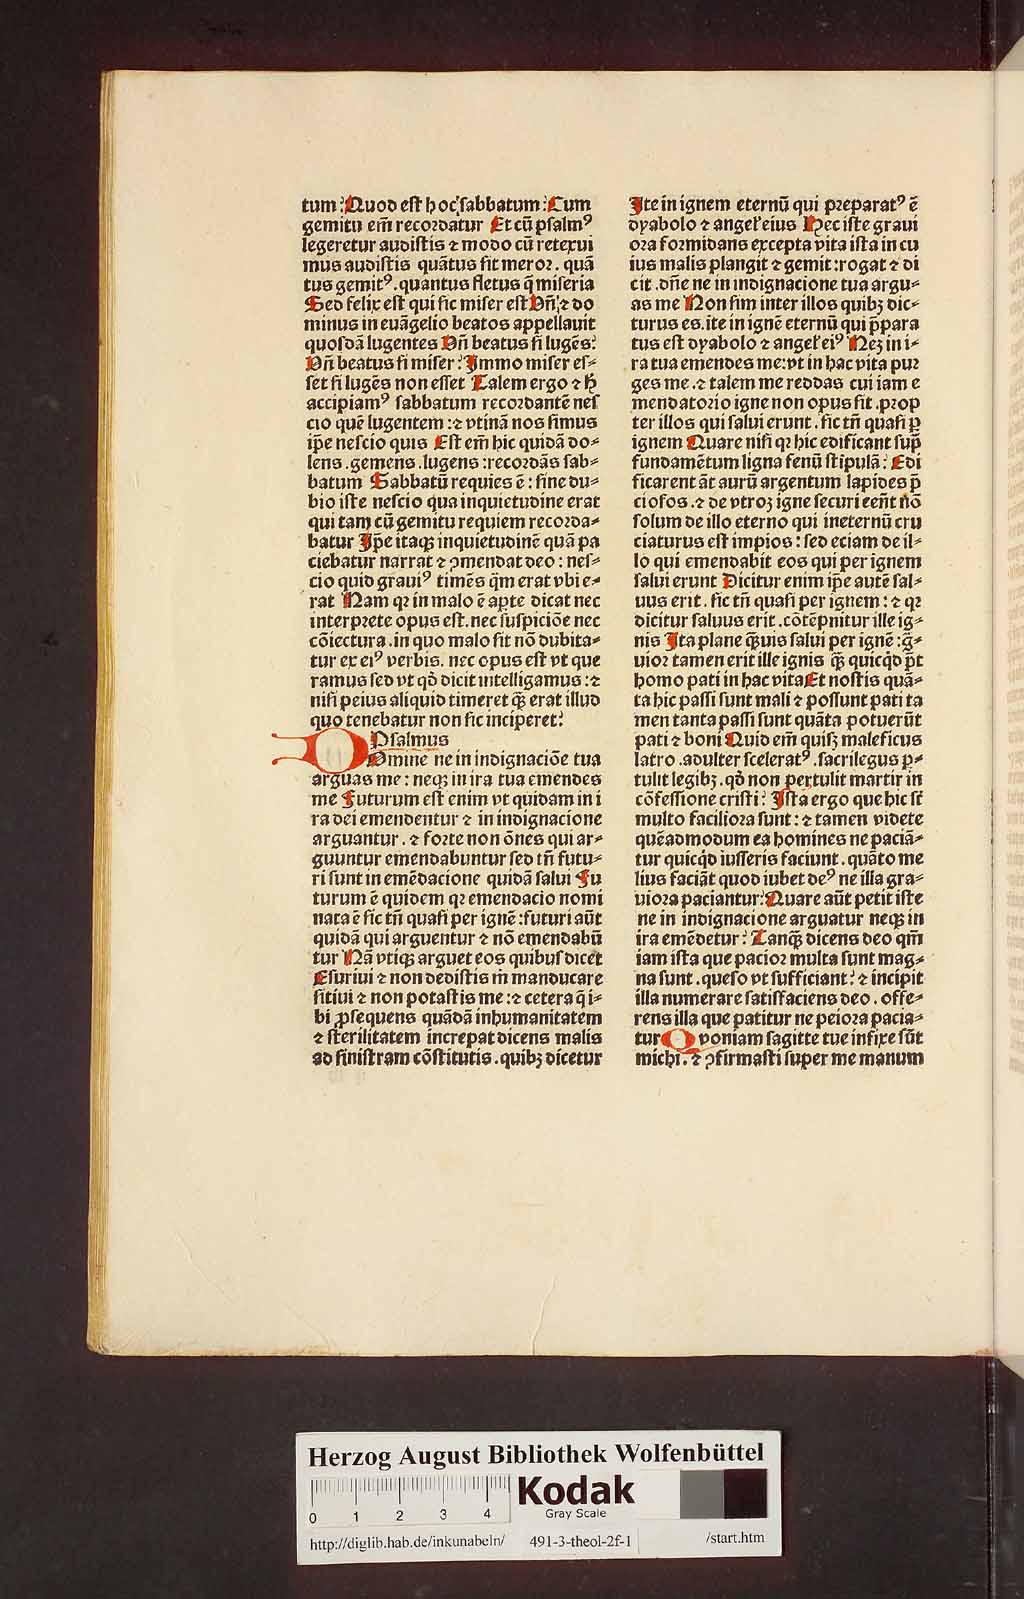 tum: Quod est hoc sabbatum: Cum
gemitu em̄ recordatur Et cū psalmꝰ
legeretur audistis ⁊ modo cū retexui
mus audistis quātus sit meror. quā
tus gemitꝰ. quantus fletus q̄ miseria
Sed felix est qui sic miser est Vn̄ ⁊ do
minus in euāgelio beatos appellauit
quosdā lugentes Vn̄ beatus si lugēs?
Vn̄ beatus si miser? Immo miser es⸗
set si lugēs non esset Talem ergo ⁊ h̄
accipiamꝰ sabbatum recordantē nes
cio quē lugentem: ⁊ vtinā nos simus
ip̄e nescio quis Est em̄ hic quidā do⸗
lens. gemens. lugens: recordās sab⸗
batum Sabbatū requies ē: sine du⸗
bio iste nescio qua inquietudine erat
qui tam cū gemitu requiem recorda⸗
batur Ip̄e itaqꝫ inquietudinē quā pa
ciebatur narrat ⁊ ꝯmendat deo: nes⸗
cio quid grauiꝰ timēs q̄m erat vbi e⸗
rat Nam qꝛ in malo ē aꝑte dicat nec
interprete opus est. nec suspiciōe nec
cōiectura. in quo malo sit nō dubita⸗
tur ex eiꝰ verbis. nec opus est vt que
ramus sed vt qō dicit intelligamus: ⁊
nisi peius aliquid timeret q̄ꝫ erat illud
quo tenebatur non sic inciperet?
Psalmus
Domine ne in indignaciōe tua
arguas me: neqꝫ in ira tua emendes
me Futurum est enim vt quidam in i
ra dei emendentur ⁊ in indignacione
arguantur. ⁊ forte non ōnes qui ar⸗
guuntur emendabuntur sed tn̄ futu⸗
ri sunt in emēdacione quidā salui Fu
turum ē quidem qꝛ emendacio nomi
nata ē sic tn̄ quasi per ignē: futuri aūt
quidā qui arguentur ⁊ nō emendabū
tur Nā vtiqꝫ arguet eos quibus dicet
Esuriui ⁊ non dedistis m̄ manducare
sitiui ⁊ non potastis me: ⁊ cetera q̄ i⸗
bi ꝓsequens quādā inhumanitatem
⁊ sterilitatem increpat dicens malis
ad sinistram cōstitutis. quibꝫ dicetur
Ite in ignem eternū qui preparatꝰ ē
dyabolo ⁊ angel̕ eius Hec iste graui
ora formidans excepta vita ista in cu
ius malis plangit ⁊ gemit: rogat ⁊ di
cit. dn̄e ne in indignacione tua argu⸗
as me Non sim inter illos quibꝫ dic⸗
turus es. ite in ignē eternū qui p̄para
tus est dyabolo ⁊ angel̕ eiꝰ Neꝫ in i⸗
ra tua emendes me: vt in hac vita pur
ges me. ⁊ talem me reddas cui iam e
mendatorio igne non opus sit. prop
ter illos qui salui erunt. sic tn̄ quasi ꝑ
ignem Quare nisi qꝛ hic edificant sup̄
fundamētum ligna fenū stipulā? Edi
ficarent āt aurū argentum lapides p̄
ciosos. ⁊ de vtroꝫ igne securi eēnt nō
solum de illo eterno qui in eternū cru
ciaturus est impios: sed eciam de il⸗
lo qui emendabit eos qui per ignem
salui erunt Dicitur enim ip̄e autē sal⸗
uus erit. sic tn̄ quasi per ignem: ⁊ qꝛ
dicitur saluus erit. cōtēpnitur ille ig⸗
nis Ita plane q̄uis salui per ignē: g̃⸗
uior tamen erit ille ignis q̄ꝫ quicq̇d p̄t
homo pati in hac vita Et nostis quā⸗
ta hic passi sunt mali ⁊ possunt pati ta
men tanta passi sunt quāta potuerūt
pati ⁊ boni Quid em̄ quisꝫ maleficus
latro. adulter sceleratꝰ. sacrilegus ꝑ⸗
tulit legibꝫ. qō non pertulit martir in
cōfessione cristi? Ista ergo que hic st̄
multo faciliora sunt: ⁊ tamen videte
quēadmodum ea homines ne paciā⸗
tur quicq̇d iusseris faciunt. quāto me
lius faciāt quod iubet deꝰ ne illa gra⸗
uiora paciantur? Quare aūt petit iste
ne in indignacione arguatur neqꝫ in
ira emēdetur? Tanq̄ꝫ dicens deo qm̄
iam ista que pacior multa sunt mag⸗
na sunt. queso vt sufficiant? ⁊ incipit
illa numerare satisfaciens deo. offe⸗
rens illa que patitur ne peiora pacia⸗
tur Qvoniam sagitte tue infixe sūt
michi. ⁊ ꝯfirmasti super me manum
Herzog August Bibliothek Wolfenbüttel
0 1 2 3 4
Kodak
Gray Scale
http://diglib.hab.de/inkunabeln/ 491-3-theol-2f-1 /start.htm